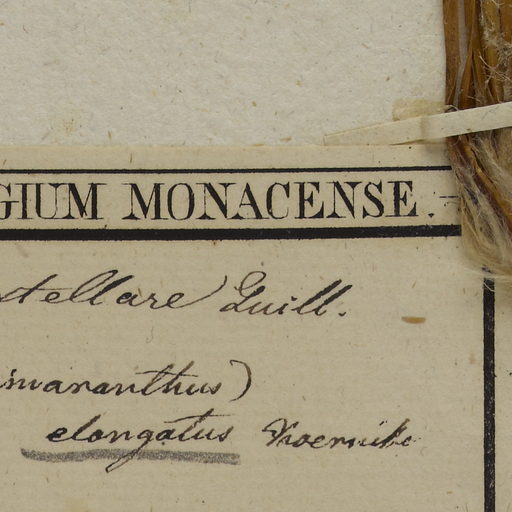 GIUM MONACENSE.
stellare Guill.
maranthus)
elongatus Koernike